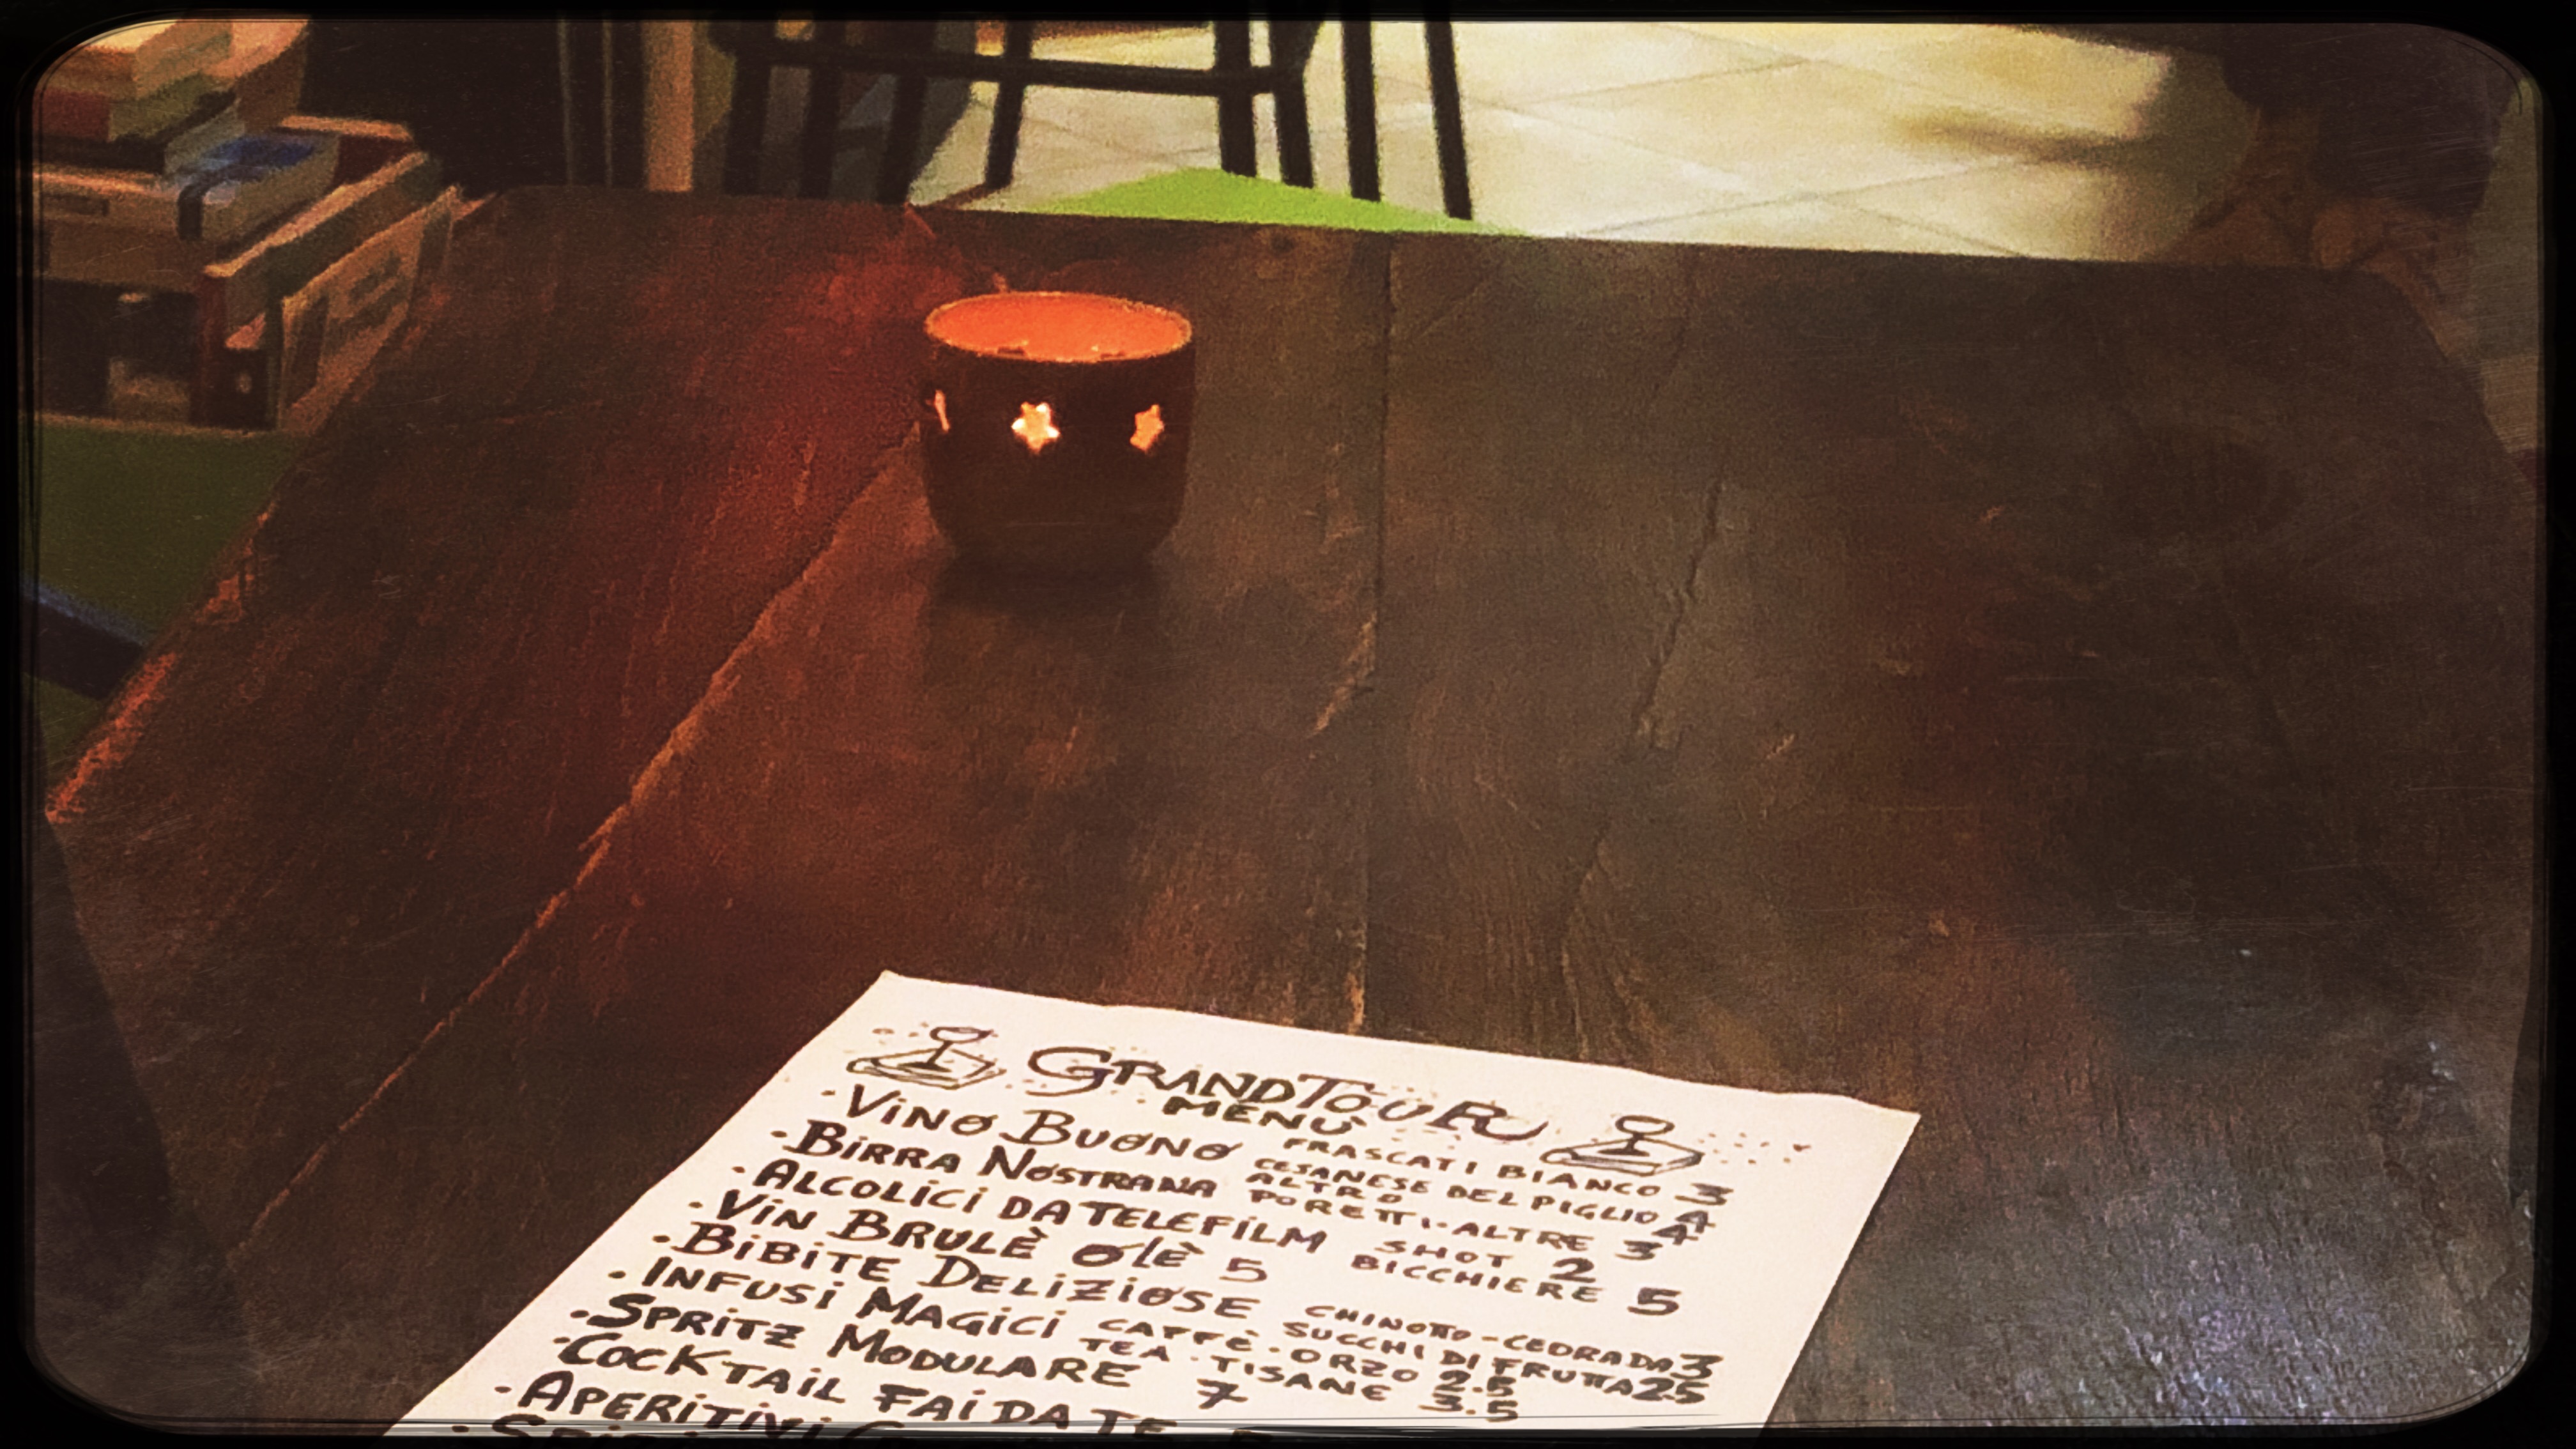 GRANDTOUR
MENÙ
·VINO BUONO FRASCATI BIANCO 3
CESANESE DEL PIGLIO 4
ALTRO 4
·BIRRA NOSTRANA PORETTI·ALTRE 3
·ALCOLICI DA TELEFILM SHOT 2
BICCHIERE 5
·VIN BRULÈ OLÈ 5
·BIBITE DELIZIOSE CHINOTTO-CEDRADA 3
SUCCHI DI FRUTTA 2.5
·INFUSI MAGICI CAFFÈ·ORZO 2.5
TEA·TISANE 3.5
·SPRITZ MODULARE 7
·COCKTAIL FAI DA TE
·APERITIVI